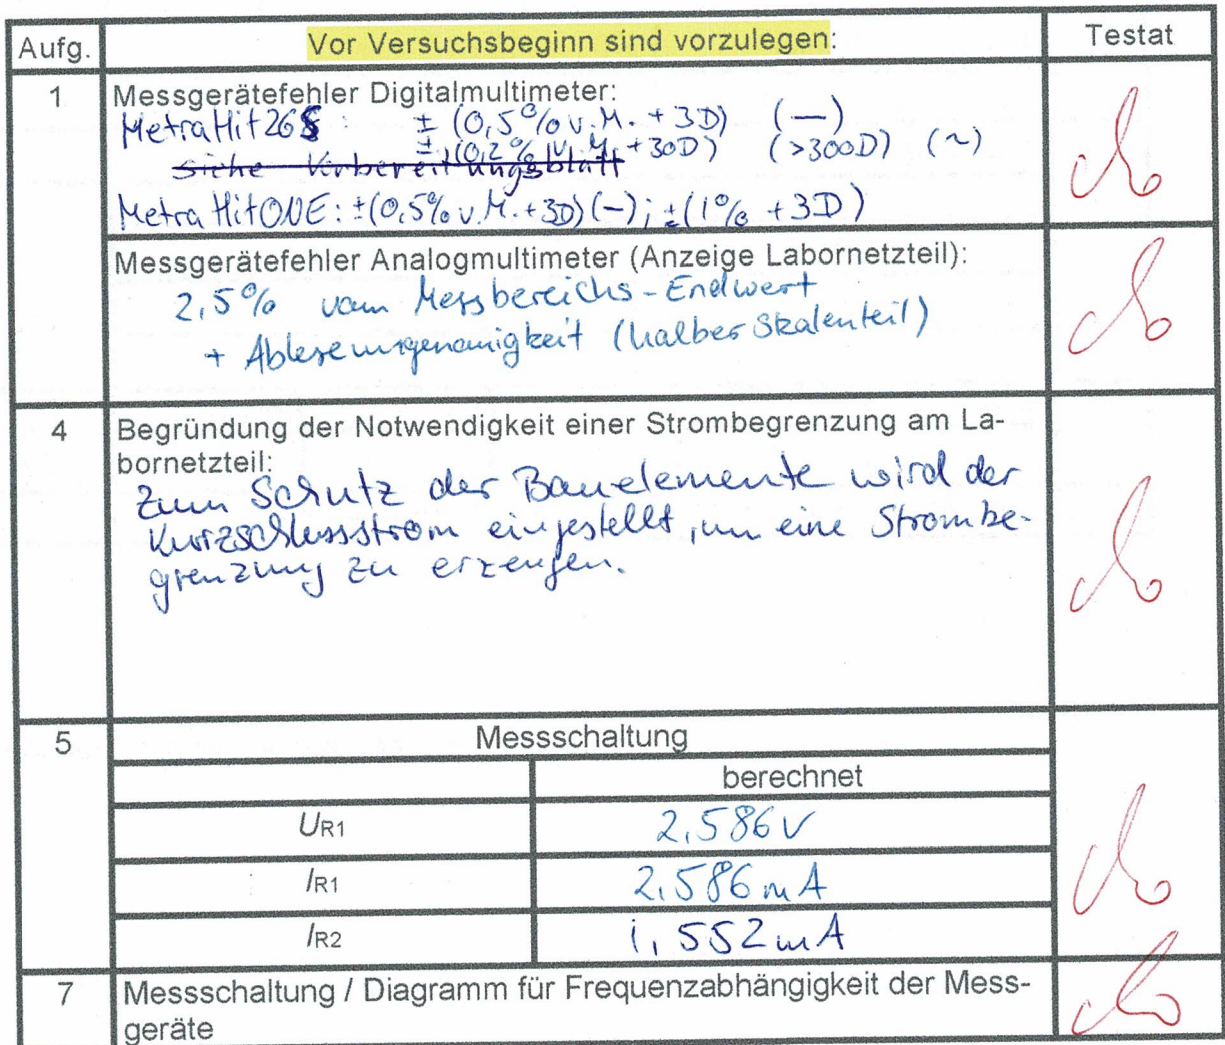 Aufg. Vor Versuchsbeginn sind vorzulegen: Testat
1 Messgerätefehler Digitalmultimeter:
MetraHit26S : ± (0,5% v.M. + 3D) (—)
± (0,2% v.M. + 30D) (>300D) (~)
siehe Vorbereitungsblatt
MetraHitONE: ±(0,5% v.M. + 3D) (–); ±(1% + 3D)
Messgerätefehler Analogmultimeter (Anzeige Labornetzteil):
2,5% vom Messbereichs-Endwert
+ Ableseungenauigkeit (halber Skalenteil)
4 Begründung der Notwendigkeit einer Strombegrenzung am La-
bornetzteil:
Zum Schutz der Bauelemente wird der
Kurzschlussstrom eingestellt, um eine Strombe-
grenzung zu erzeugen.
5 Messschaltung
berechnet
UR1 2,586V
IR1 2,586mA
IR2 1,552mA
7 Messschaltung / Diagramm für Frequenzabhängigkeit der Mess-
geräte